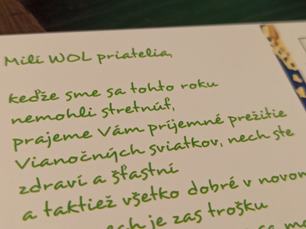 Milí WOL priatelia,
keďže sme sa tohto roku
nemohli stretnúť,
prajeme Vám príjemné prežitie
Vianočných sviatkov, nech ste
zdraví a šťastní
a taktiež všetko dobré v novom
je zas trošku